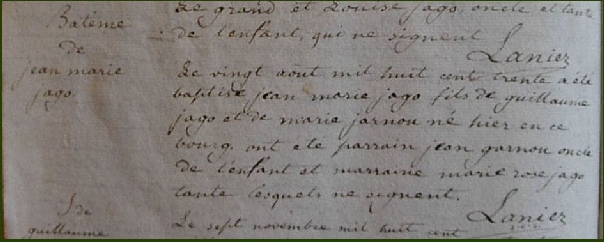 Le grand et Louise jago, oncle et tante
de l'enfant, qui ne signent
Lanier
Batême
de
jean marie
jago
Le vingt aout mil huit cent trente a été
baptisé jean marie jago fils de guillaume
jago et de marie jarnou né hier en ce
bourg, ont ete parrain jean garnou oncle
de l'enfant et marraine marie rose jago
tante lesquels ne signent.
Lanier
S de
guillaume
Le sept novembre mil huit cent